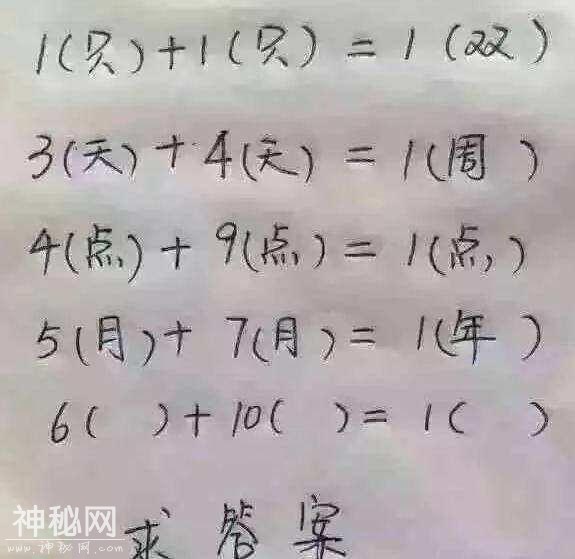 1(只)+1(只)=1(双)
3(天)+4(天)=1(周)
4(点)+9(点)=1(点)
5(月)+7(月)=1(年)
6( )+10( )=1( )
求答案
神秘网
www.神秘网.com